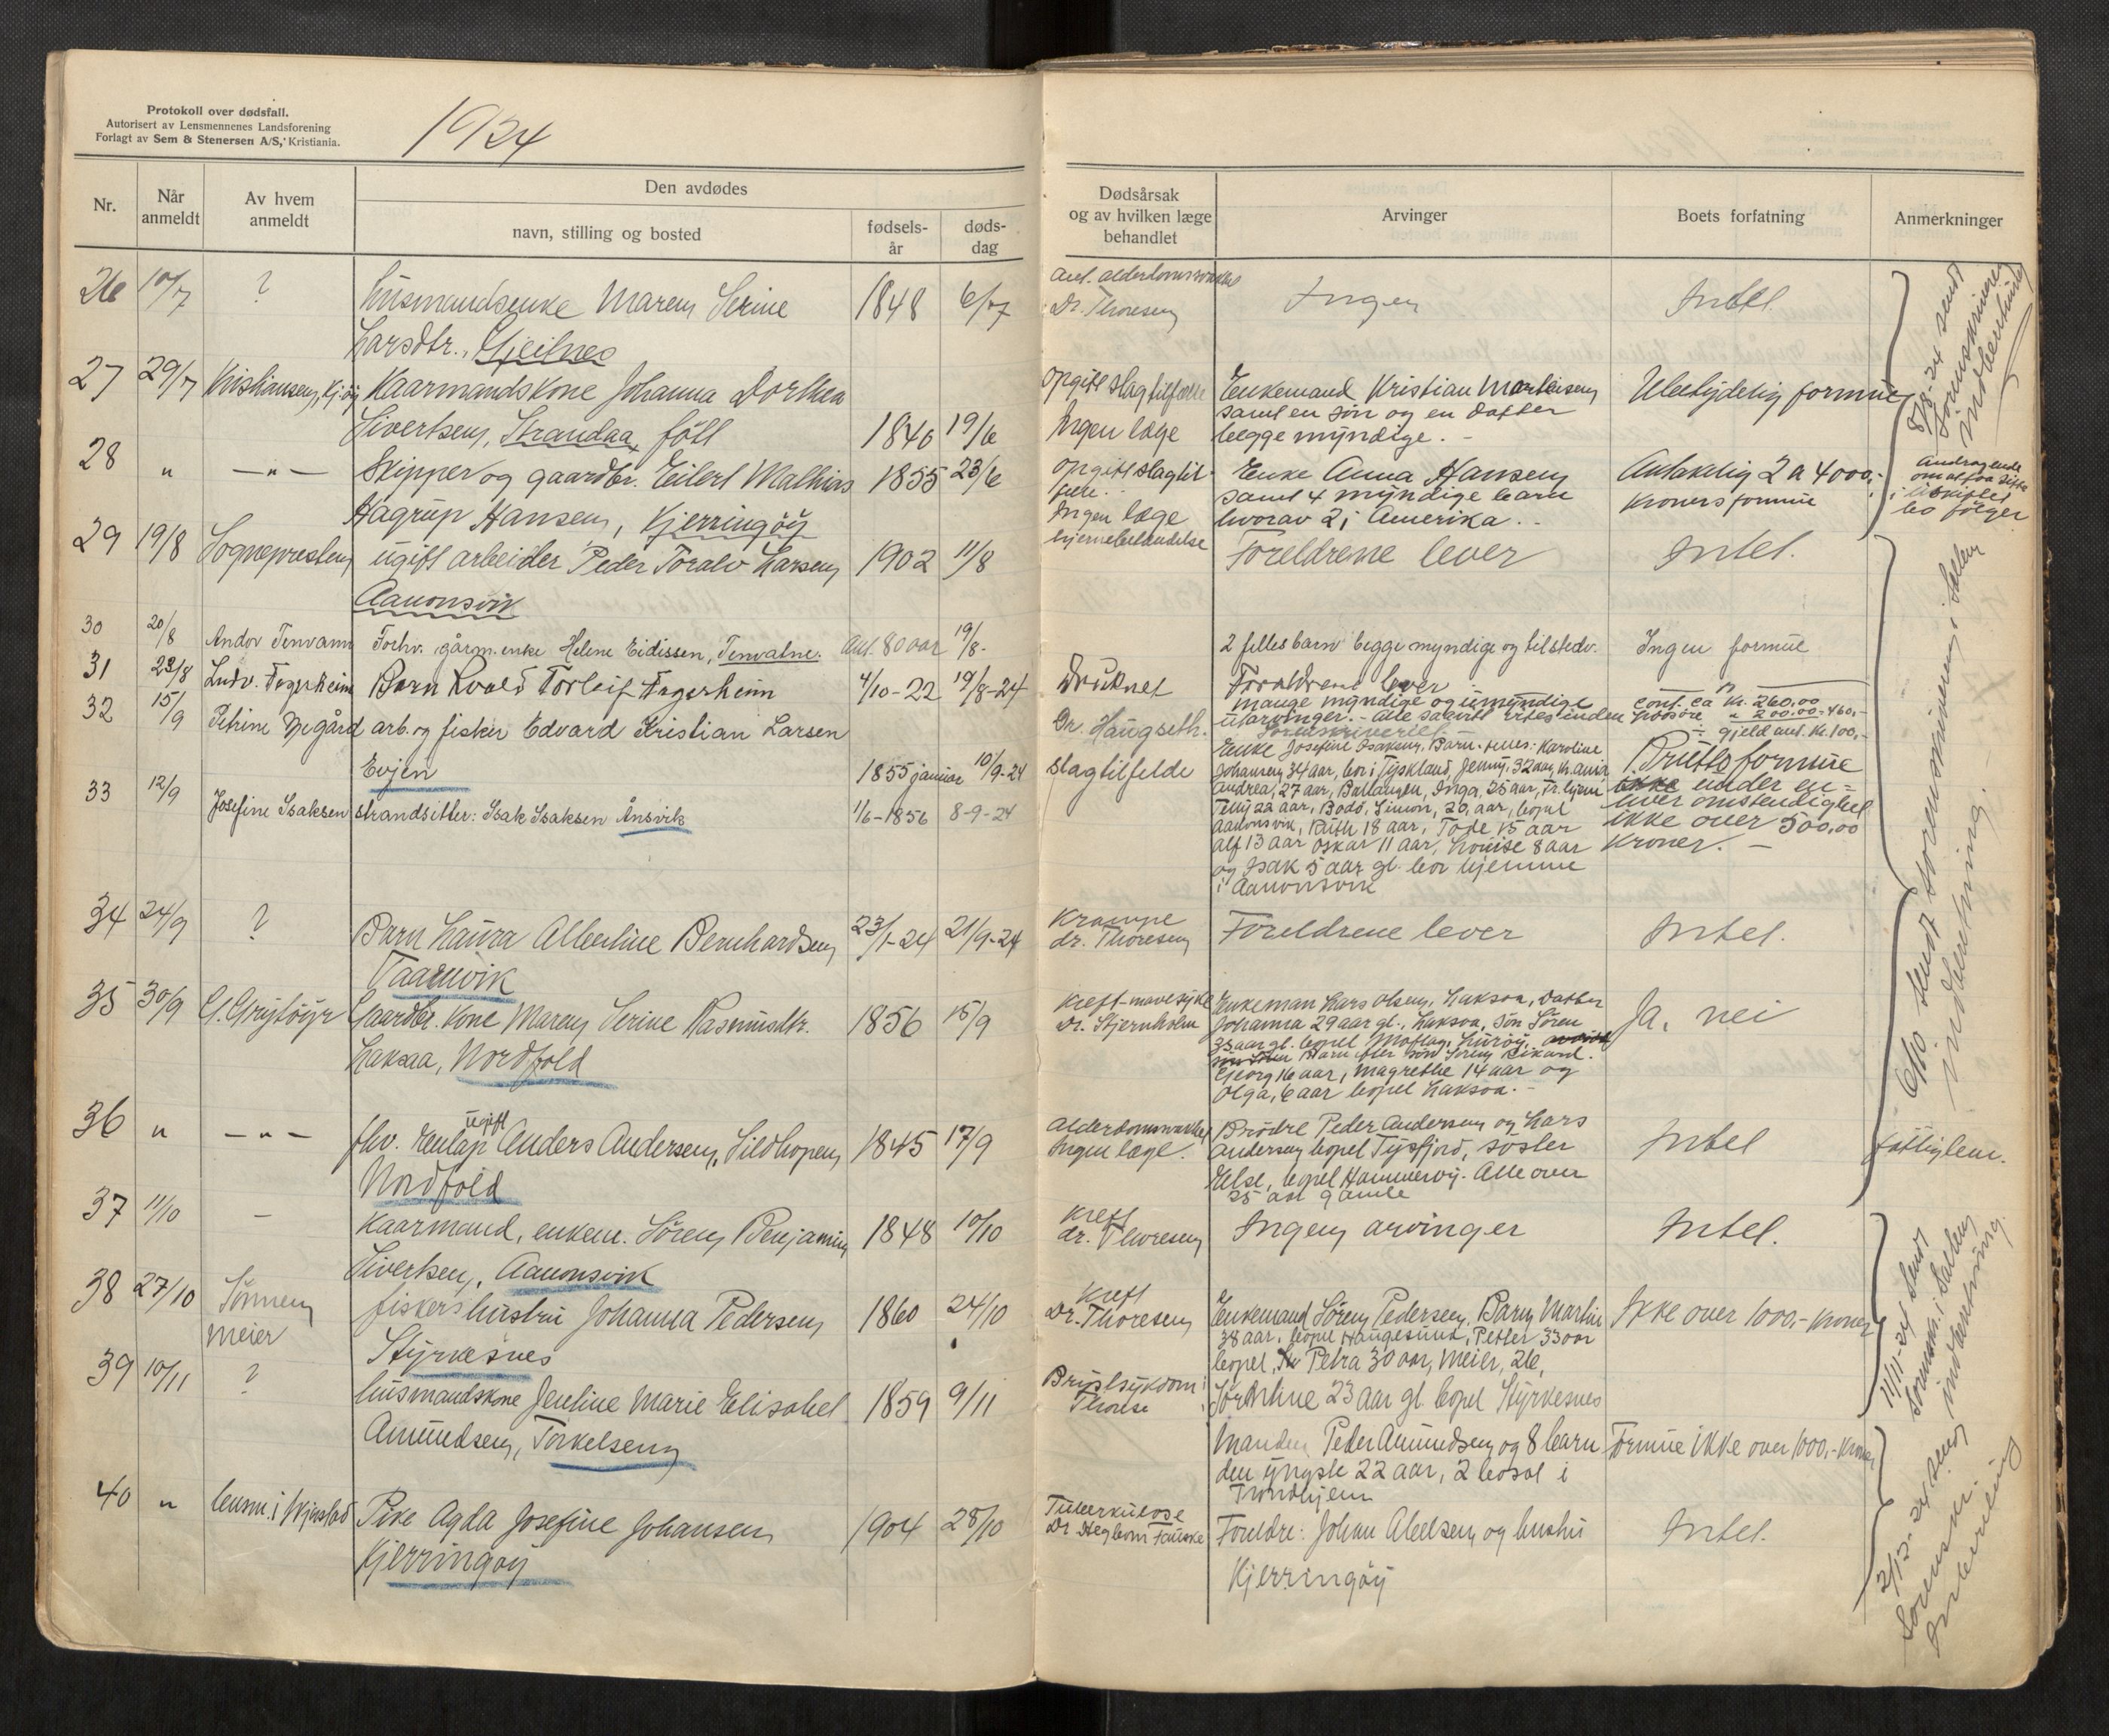 Protokoll over dødsfall.
Autorisert av Lensmennenes Landsforening
Forlagt av Sem & Stenersen A/S, Kristiania.
1924
Nr.
Når anmeldt
Av hvem anmeldt
Den avdødes
navn, stilling og bosted
fødsels-år
døds-dag
Dødsårsak og av hvilken læge behandlet
Arvinger
Boets forfatning
Anmerkninger
26 10/7 ? husmandsenke Maren Serine 1848 6/7
Larsdtr., Gjeitnes
Ant. alderdomssvakhet
Dr. Thoresen
Ingen
Intet
27 29/7 Kristiansen, Kj.öy Kaarmandskone Johanna Dorthea
Sivertsen, Strandaa, föll 1840 19/6
Opgitt slagtilfælle
Ingen læge
Enkemand Kristian Martinsen
samt en sön og en datter
begge myndige. -
Ubetydelig formue
8/8-24 sendt
Sorenskriveren
indberetning
28 " —"— Skipper og gaardbr. Eilert Mathias 1855 23/6
Hagrup Hansen, Kjerringöy
Opgitt slagtil-
fære.
Ingen læge
Enke Anna Hansen
samt 4 myndige barn
hvorav 2 i Amerika. -
Antakelig 2 a 4000,-
kroners formue
Andragende
om at faa sitte
i uskiftet
bo følger
29 19/8 Sognepresten ugift arbeider Peder Toralv Larsen 1902 11/8
Aanonsvik
hjernebetændelse
Foreldrene lever
Intet.
30 20/8 Andor Tenvann Forhv. gårm. enke Helene Eidissen, Tenvatne. Ant. 80 aar 19/8-
2 felles barn begge myndige og tilstede.
Ingen formue
31 23/8 Ludv. Fagerheim Barn Roald Torleif Fagerheim 4/10-22 19/8-24
Druknet
Foreldrene lever
"
32 15/9 Petrine Nygård arb. og fisker Edvard Kristian Larsen
Evjen 1855 januar 10/9-24
Dr. Haugseth.
slagtilfelde
mange myndige og umyndige
utarvinger. - Alle
Sorenskriveriet
cont. ca kr. 260.00
lödsöre " 200.00 - 460,-
÷ gjeld ant. kr. 100,-
33 12/9 Josefine Isaksen strandsitter: Isak Isaksen Ånsvik 11/6-1856 8-9-24
Enke Josefine Isaksen. Barn - felles: Karoline
Johansen 34 aar, bor i Tyskland, Jenny, 32 aar, Kr.ania
Andrea, 27 aar, Ballangen, Inga, 25 aar, Tr. hjem
Telly 22 aar, Bodö, Simon, 20, aar, bopel
Aanonsvik, Ruth 18 aar, Tode 15 aar
Alf 13 aar Oskar 11 aar, Louise 8 aar
og Isak 5 aar gl. bor hjemme
i Aanonsvik
Bruttoformue
ikke under en-
hver omstendighet
ikke over 500,00
kroner. -
34 24/9 ? Barn Laura Albertine Bernhardsen 23/1-24 21/9-24
Taarnvik
Krampe
dr. Thoresen
Foreldrene lever
Intet.
6/10 sendt sorenskriveren i Salten
indberetning.
35 30/9 G. Grytöyr Gaardbr. kone Maren Serine Rasmusdtr. 1856 15/9
Laksaa, Nordfold
Kreft-mavesyke
Dr. Stjernholm
Enkeman Lars Olsen, Laksaa, Datter
Johanna 29 aar gl., Laksaa, Sön Sören
35 aar gl. bopel Moflag, Luröy,
Barn efter sön Sören Rikard.
Georg 16 aar, Magrethe 14 aar og
Olga, 6 aar bopel Laksaa. -
Ja, nei
36 " —"— fhv. ugift Anders Andersen, Sildhopen, 1845 17/9
Nordfold
Alderdomsvakhet
Ingen læge.
Brödre Peder Andersen og Lars
Andersen bopel Tysfjord, söster
Else, bopel Hammeröy. Alle over
25 aar gamle
Intet
fattiglem.
37 11/10 - Kaarmand, enkem. Sören Benjamin 1848 10/10
Sivertsen, Aanonsvik
Kreft
dr. Thoresen
Ingen arvinger
Intet.
38 27/10 Sönnen Meier fiskers hustru Johanna Pedersen 1860 24/10
Styrkesnes
Kreft
Dr. Thoresen
Enkemand Sören Pedersen, Barn Martin
38 aar, bopel Haugesund, Petter 33 aar
bopel, Petra 30 aar, Meier, 26,
Sör Arline 23 aar gl. bopel Styrkesnes
Ikke over 1000,- kroner
11/11-24 sendt
Sorenskr. i Salten
indberetning.
39 10/11 ? husmandskone Jentine Marie Elisabet 1859 9/11
Amundsen, Torkelseng
Brystsykdom
Thorese
Manden Peder Amundsen og 8 barn
den yngste 22 aar, 2 bosat i
Trondhjem
Formue ikke over 1000,- kroner
40 " lensm. i Skjerstad Pike Agda Josefine Johansen 1904 28/10
Kjerringöy
Tuberkulose
Dr Hegbom Fauske
Foreldre: Johan Abelsen og hustru
Kjerringöy
Intet.
2/12-24 sendt
Sorenskr.